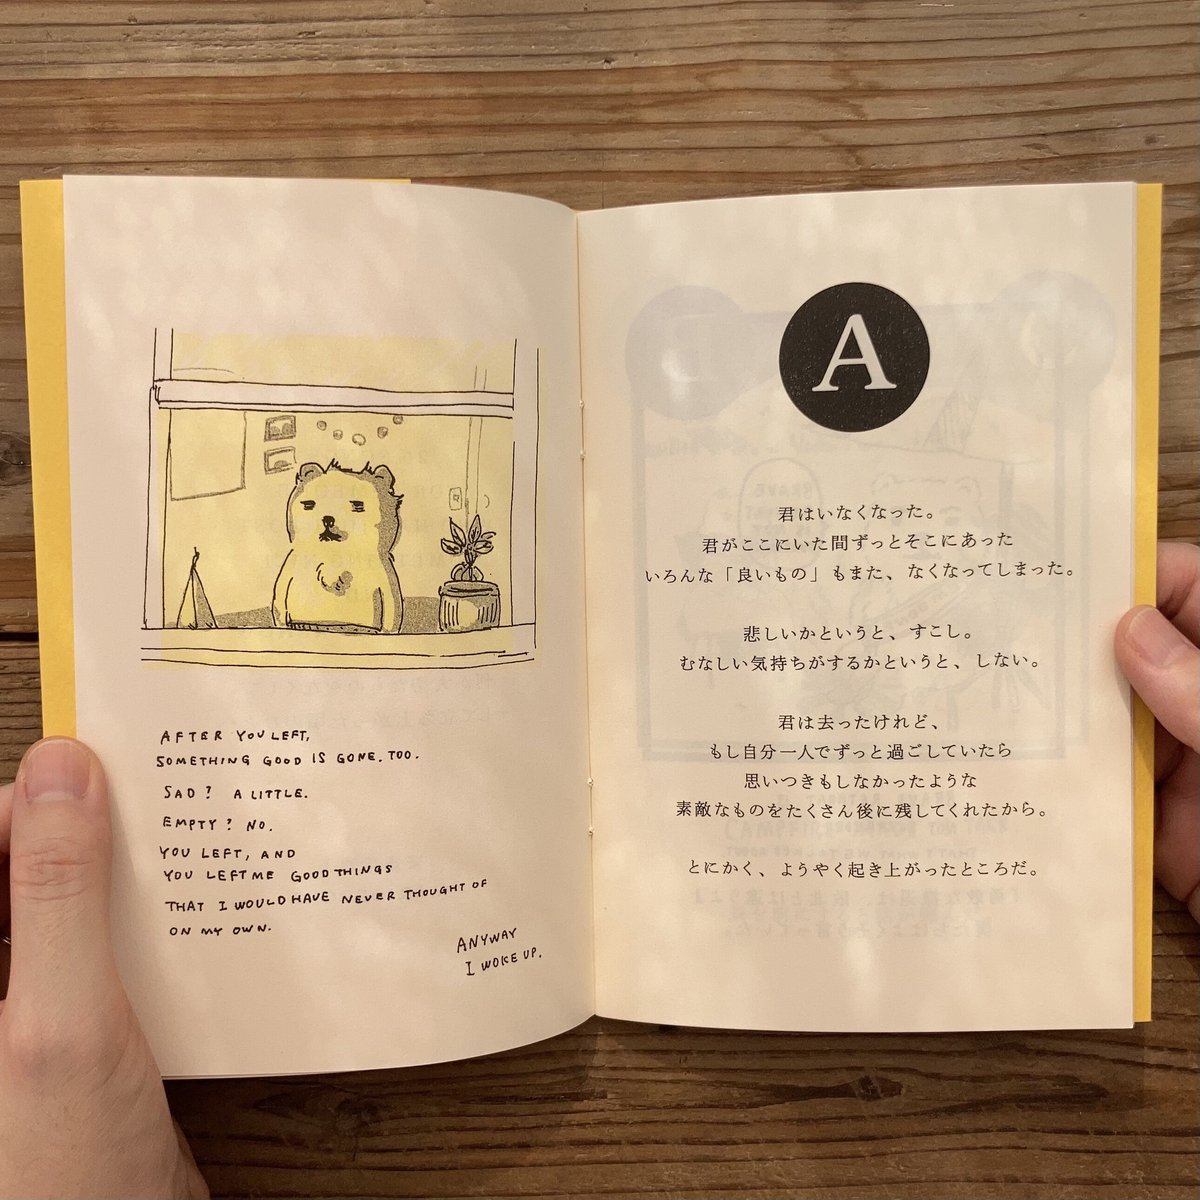 AFTER YOU LEFT,
SOMETHING GOOD IS GONE. TOO.
SAD? A LITTLE.
EMPTY? NO.
YOU LEFT, AND
YOU LEFT ME GOOD THINGS
THAT I WOULD HAVE NEVER THOUGHT OF
ON MY OWN.
ANYWAY
I WOKE UP.
A
君はいなくなった。
君がここにいた間ずっとそこにあった
いろんな「良いもの」もまた、なくなってしまった。
悲しいかというと、すこし。
むなしい気持ちがするかというと、しない。
君は去ったけれど、
もし自分一人でずっと過ごしていたら
思いつきもしなかったような
素敵なものをたくさん後に残してくれたから。
とにかく、ようやく起き上がったところだ。